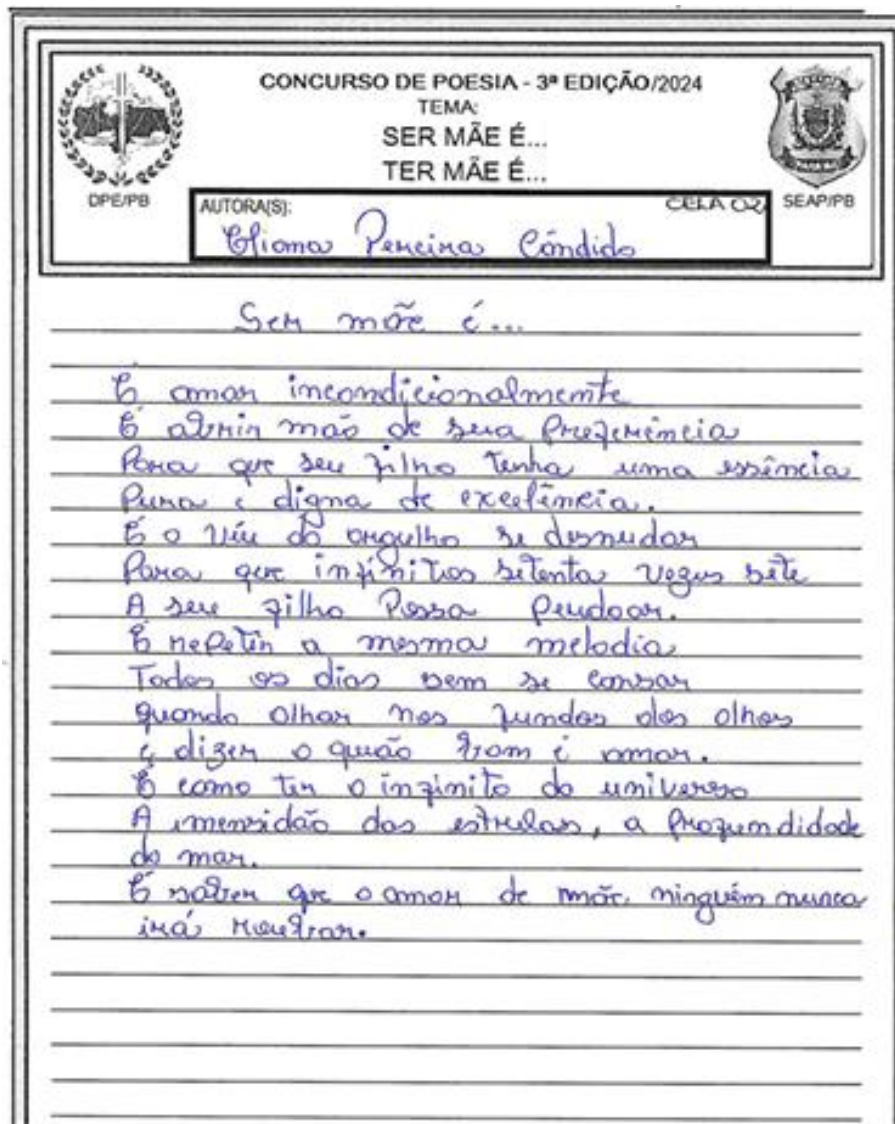 CONCURSO DE POESIA - 3ª EDIÇÃO/2024
TEMA:
SER MÃE É...
TER MÃE É...
DPE/PB
SEAP/PB
AUTORA(S):
CELA 02
Eliana Pereira Cândido
Ser mãe é...
É amar incondicionalmente
É abrir mão de sua preferência
Para que seu filho tenha uma essência
Pura e digna de excelência.
É o véu do orgulho se desnudar
Para que infinitos setenta vezes sete
A seu filho Possa Perdoar.
É repetir a mesma melodia
Todos os dias sem se cansar
quando olhar nos fundos dos olhos
e dizer o quão bom é amar.
É como ter o infinito do universo
A imensidão das estrelas, a profundidade
do mar.
É saber que o amor de mãe, ninguém nunca
irá roubar.